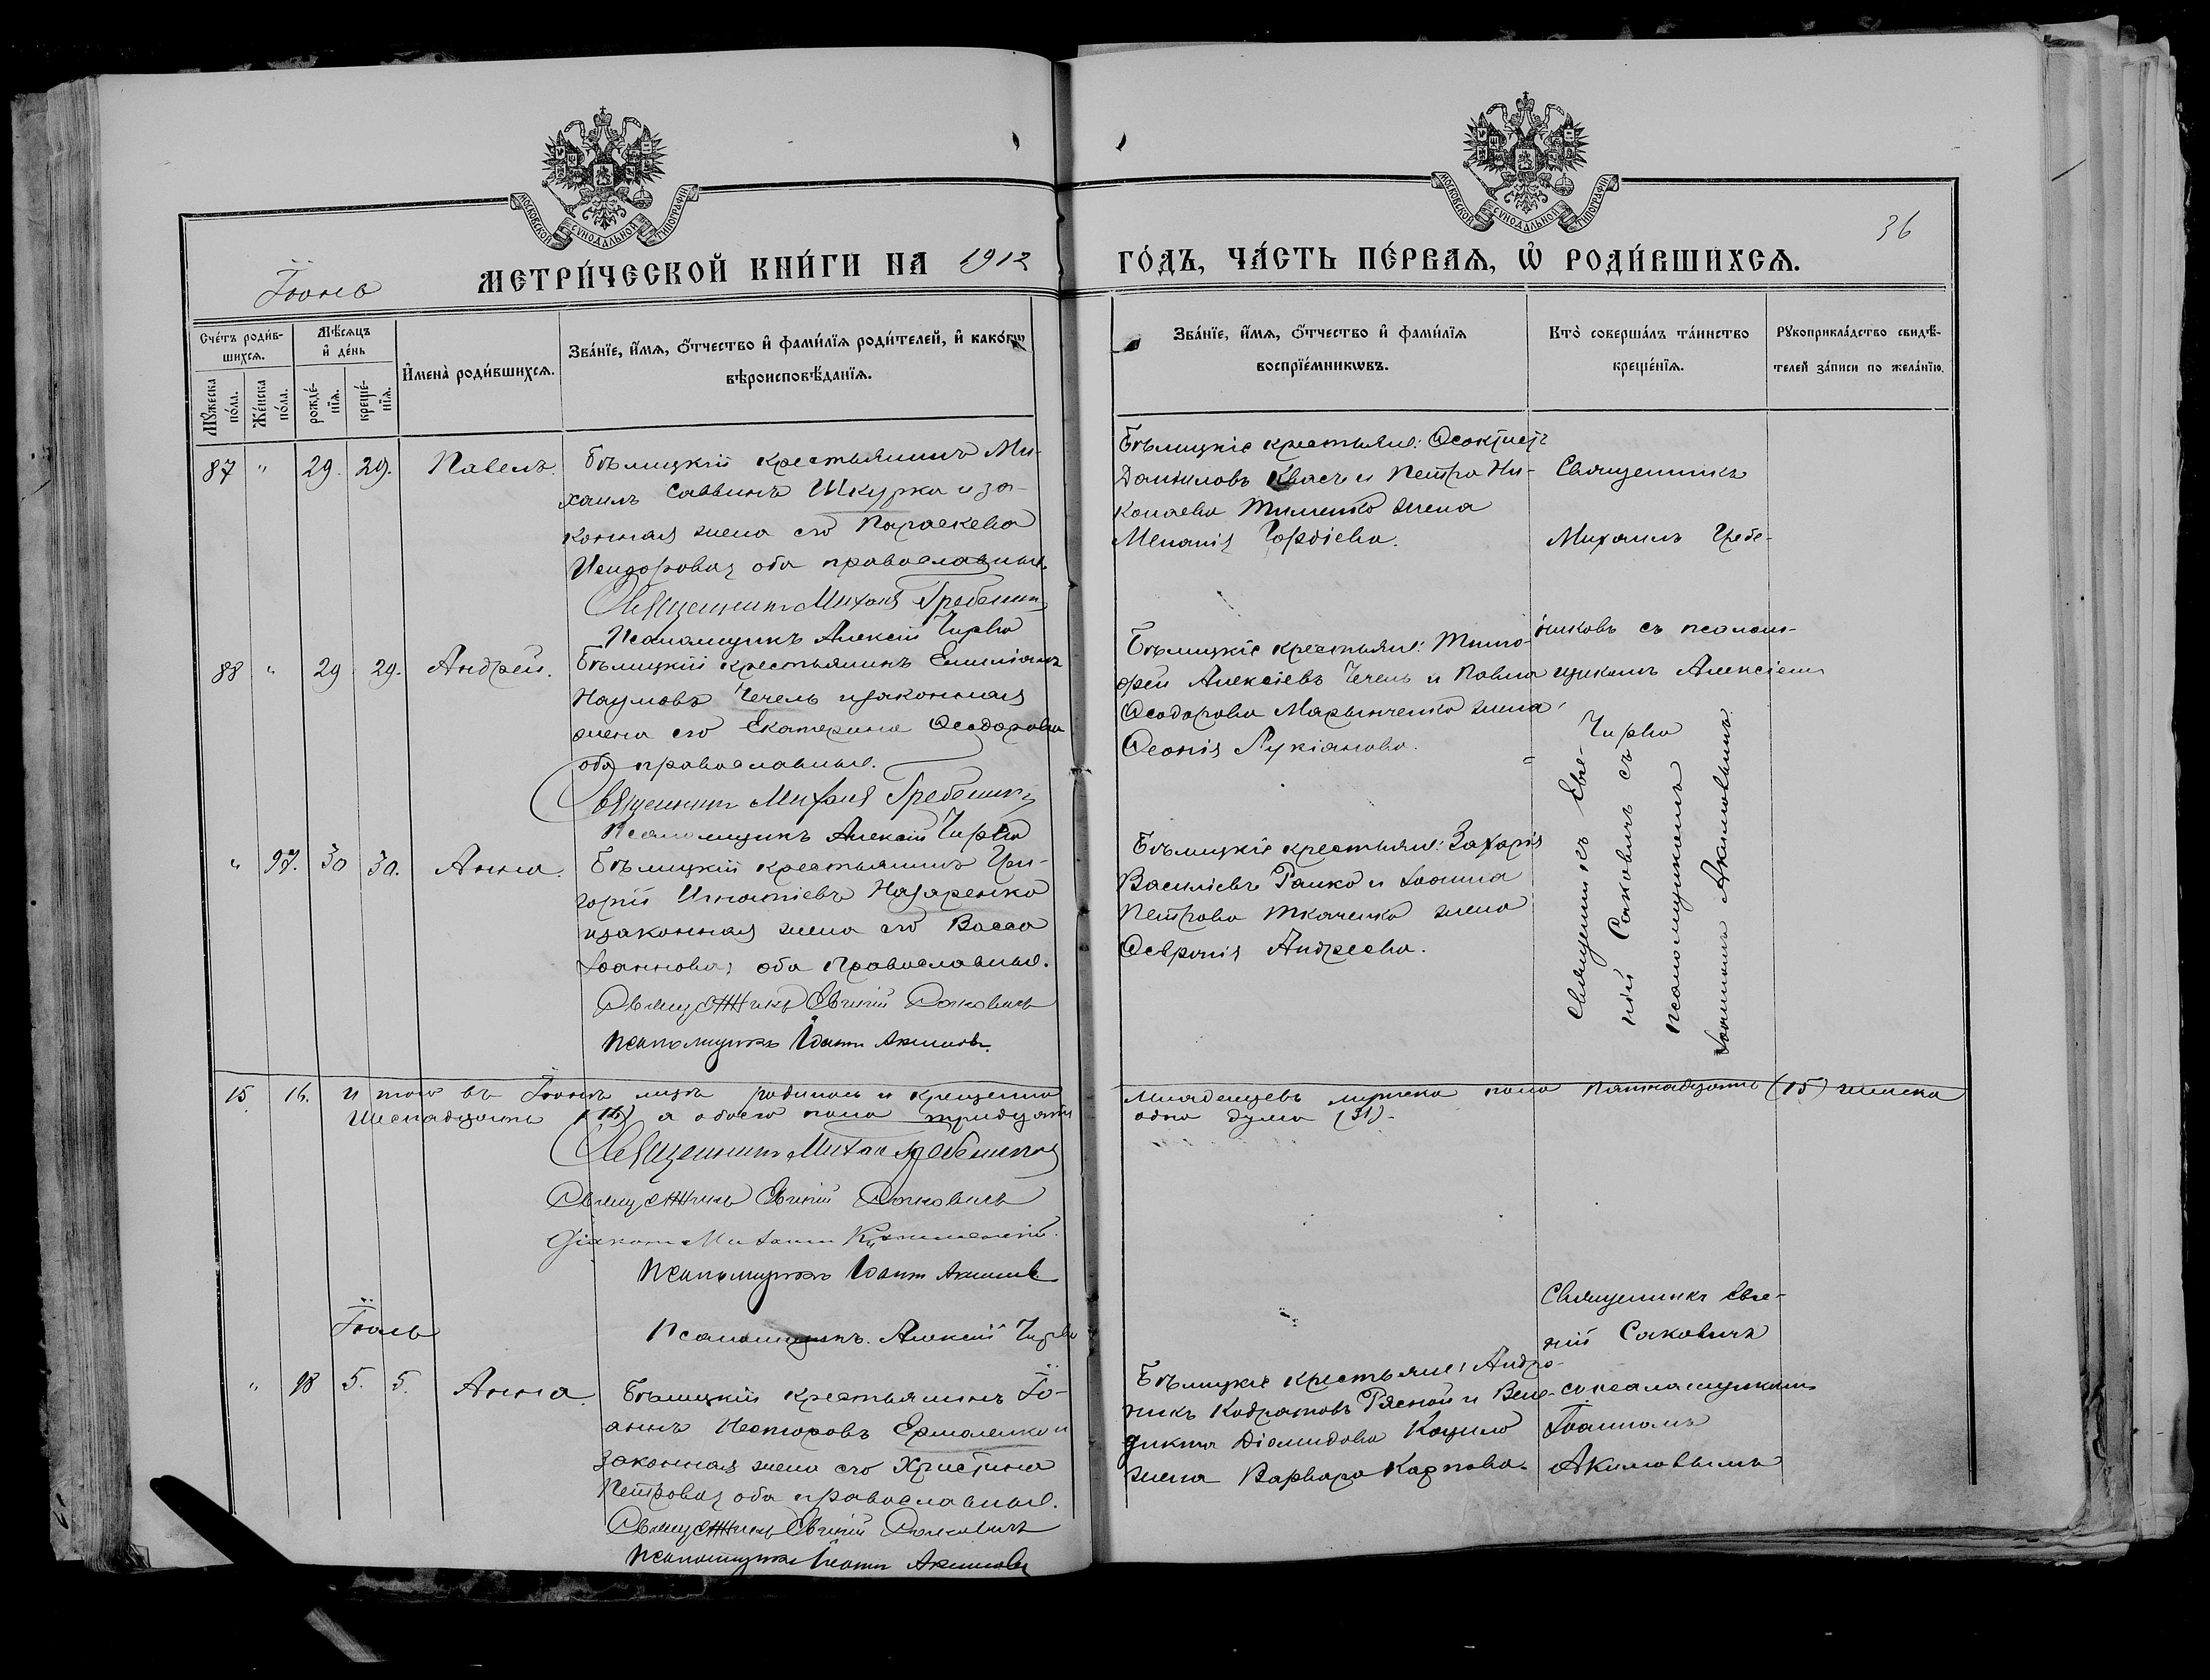 МОСКОВСКОЙ СѴНОДАЛЬНОЙ ТИПОГРАФІИ
МОСКОВСКОЙ СѴНОДАЛЬНОЙ ТИПОГРАФІИ
36
Іюнь
МЕТРИ́ЧЕСКОЙ КНИ́ГИ НА 1912
ГО́ДЪ, ЧА́СТЬ ПЕ́РВАѦ, Ѽ РОДИ́ВШИХСѦ.
Сче́тъ роди́в-
шихсѧ.
Мꙋ́жеска по́ла.
Же́нска по́ла.
Мѣ́сѧцъ
и҆ де́нь
рожде́-
нїѧ.
креще́-
нїѧ.
И҆мена̀ роди́вшихсѧ.
Зва́нїе, и҆́мѧ, ѻ҆́тчество и҆ фами́лїѧ роди́телей, и҆ како́гѡ
вѣроисповѣ́данїѧ.
Зва́нїе, и҆́мѧ, ѻ҆́тчество и҆ фами́лїѧ
воспрїе́мникѡвъ.
Кто̀ соверша́лъ та́инство
креще́нїѧ.
Рꙋкоприкла́дство свидѣ́-
телей за́писи по жела́нїю.
87 " 29. 29. Павелъ.
Бѣлицкій крестьянинъ Ми-
хаилъ Саввинъ Шкурка и за-
конная жена его Параскева
Исидорова, оба православные.
Священникъ Михаилъ Гребенник
Псаломщикъ Алексій Чирва
Бѣлицкіе крестьяне: Ѳеоктистъ
Даниловъ Квасъ и Петра Ни-
колаева Тименко жена
Меланія Гордіева.
Священникъ
Михаилъ Гребе-
никовъ съ псалом-
щикомъ Алексіемъ
Чирва
88 " 29 29. Андрей.
Бѣлицкій крестьянинъ Емиліанъ
Наумовъ Чечель и законная
жена его Екатерина Ѳеодорова
оба православные.
Священникъ Михаилъ Гребенник
Псаломщикъ Алексій Чирва
Бѣлицкіе крестьяне: Тимо-
фей Алексіевъ Чечель и Павла
Ѳеодорова Марынченко жена
Лукіанова.
" 97. 30 30. Анна.
Бѣлицкій крестьянинъ Гри-
горій Игнатіевъ Назаренко
и законная жена его Васса
Іоаннова, оба православные.
Священникъ Евгеній Сакович
Псаломщикъ Іоаннъ Акимовъ.
Бѣлицкіе крестьяне: Захарія
Василіевъ Рапко и Іоанна
Петрова Ткаченко жена
Ѳевронія Андреева.
Священникъ Евге-
ній Саковичъ съ
псаломщикомъ
Іоанномъ Акимовымъ.
15. 16. Итого въ Іюнѣ мцѣ родилось и крещено младенцевъ мужска пола пятнадцать (15) женска
шеснадцать (16) а обоего пола тридцать одна душа (31).
Священникъ Михаилъ Гребенников
Священникъ Евгеній Сакович
Псаломщикъ Іоаннъ Акимов
Псаломщикъ Алексій Чирва
Іюль
" 98 5. 5. Анна.
Бѣлицкій крестьянинъ Іо-
аннъ Несторовъ Ермоленко и
законная жена его Христина
Петрова, оба православные.
Священникъ Евгеній Сакович
Псаломщикъ Іоаннъ Акимовъ
Бѣлицкіе крестьяне: Андро-
никъ Кодратовъ Рясной и Вене-
дикта Діомидова Коцило
жена Варвара Карпова.
Священникъ Евге-
ній Саковичъ
съ псаломщикомъ
Іоанномъ
Акимовымъ